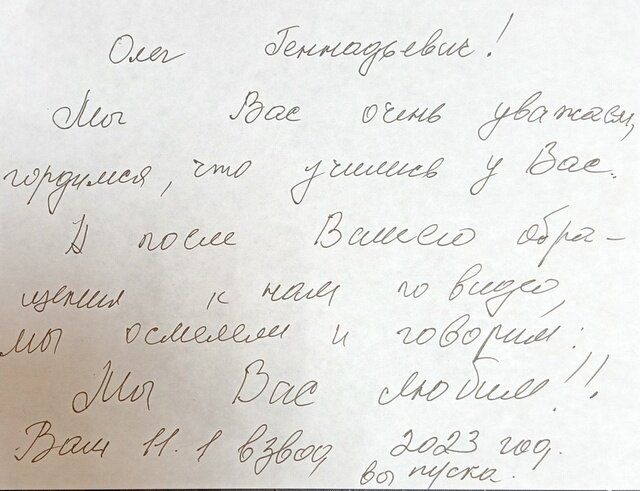 Олег Геннадьевич!
Мы Вас очень уважаем,
гордимся, что учились у Вас.
И после Вашего обра-
щения к нам по видео,
мы осмелели и говорим:
Мы Вас любим!!
Ваш 11.1 взвод 2023 год.
выпуска.